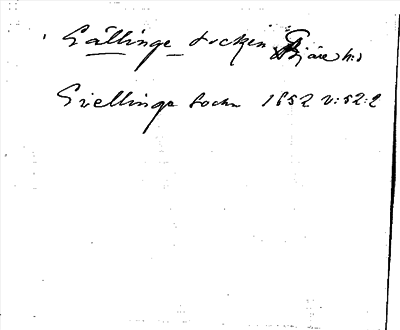 Gällinge socken Fjäre hd
Giellinge Sockn 1652 v:52:2